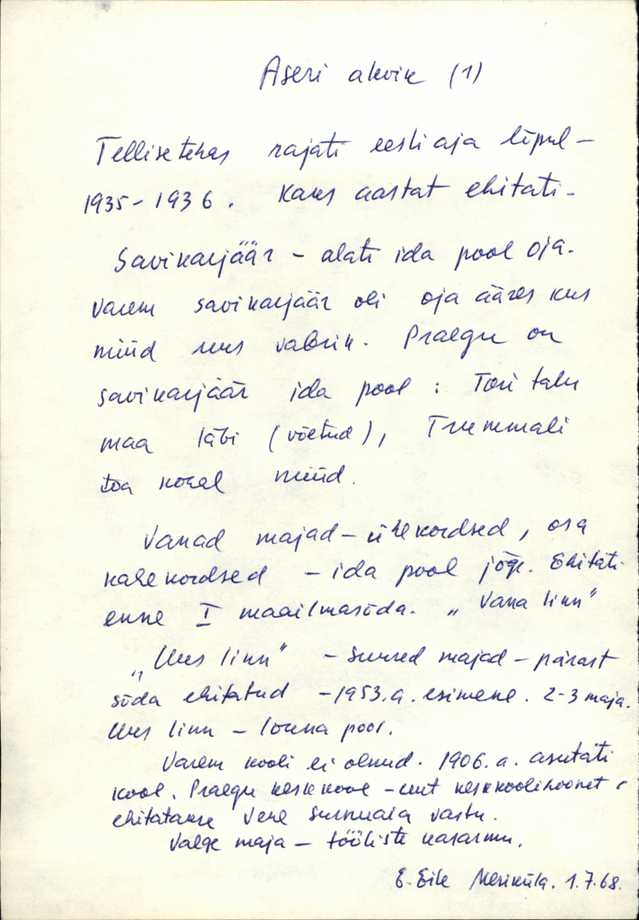 Aseri alevik (1)
Tellisetehas rajati eesti aja lõpul –
1935 – 1936. Kaks aastat ehitati.
Savikarjäär – alati ida pool oja.
Varem savikarjäär oli oja ääres kus
nüüd uus vabrik. Praegu on
savikarjäär ida pool : Tori talu
maa läbi (võetud), Trummali
toa kohal nüüd.
Vanad majad – ühekordsed, osa
kahekordsed – ida pool jõge. Ehitati
enne I maailmasõda. „Vana linn"
„Uus linn" – suured majad – pärast
sõda ehitatud – 1953. a. esimene. 2-3 maja.
Uus linn – lõuna pool.
Varem kooli ei olnud. 1906. a. asutati
kool. Praegu keskkool – uut keskkoolihoonet
ehitatakse Vene surnuaia vastu.
Valge maja – tööliste kasarmu.
E. Eile Meriküla. 1.7.68.